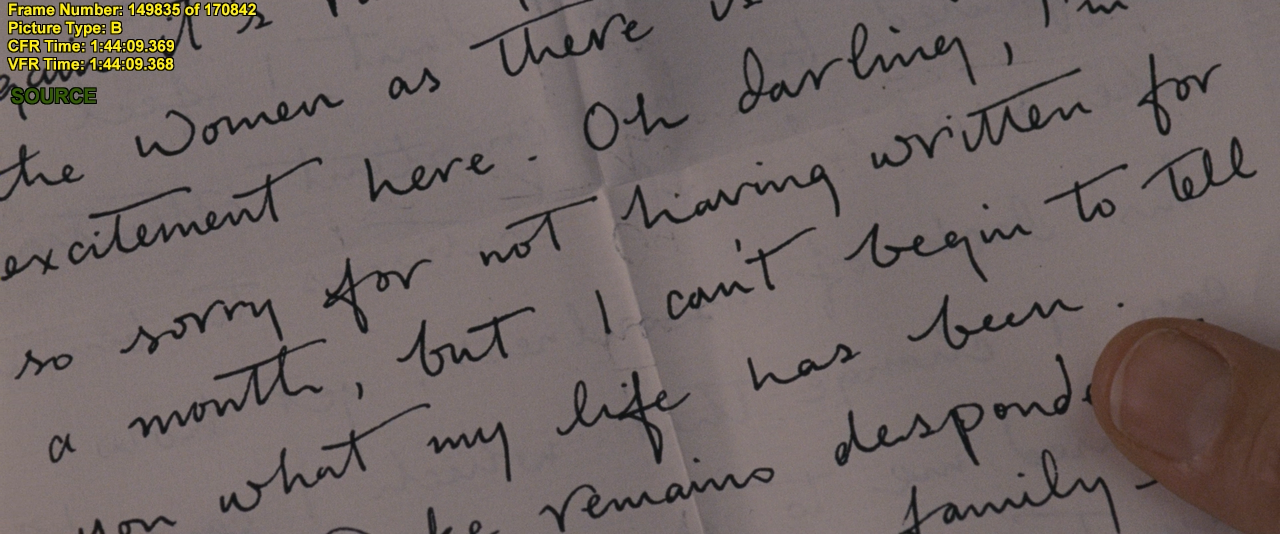 Frame Number: 149835 of 170842
Picture Type: B
CFR Time: 1:44:09.369
VFR Time: 1:44:09.368
SOURCE
the women as there
excitement here. Oh darling, I'm
so sorry for not having written for
a month, but I can't begin to tell
you what my life has been.
remains
family -